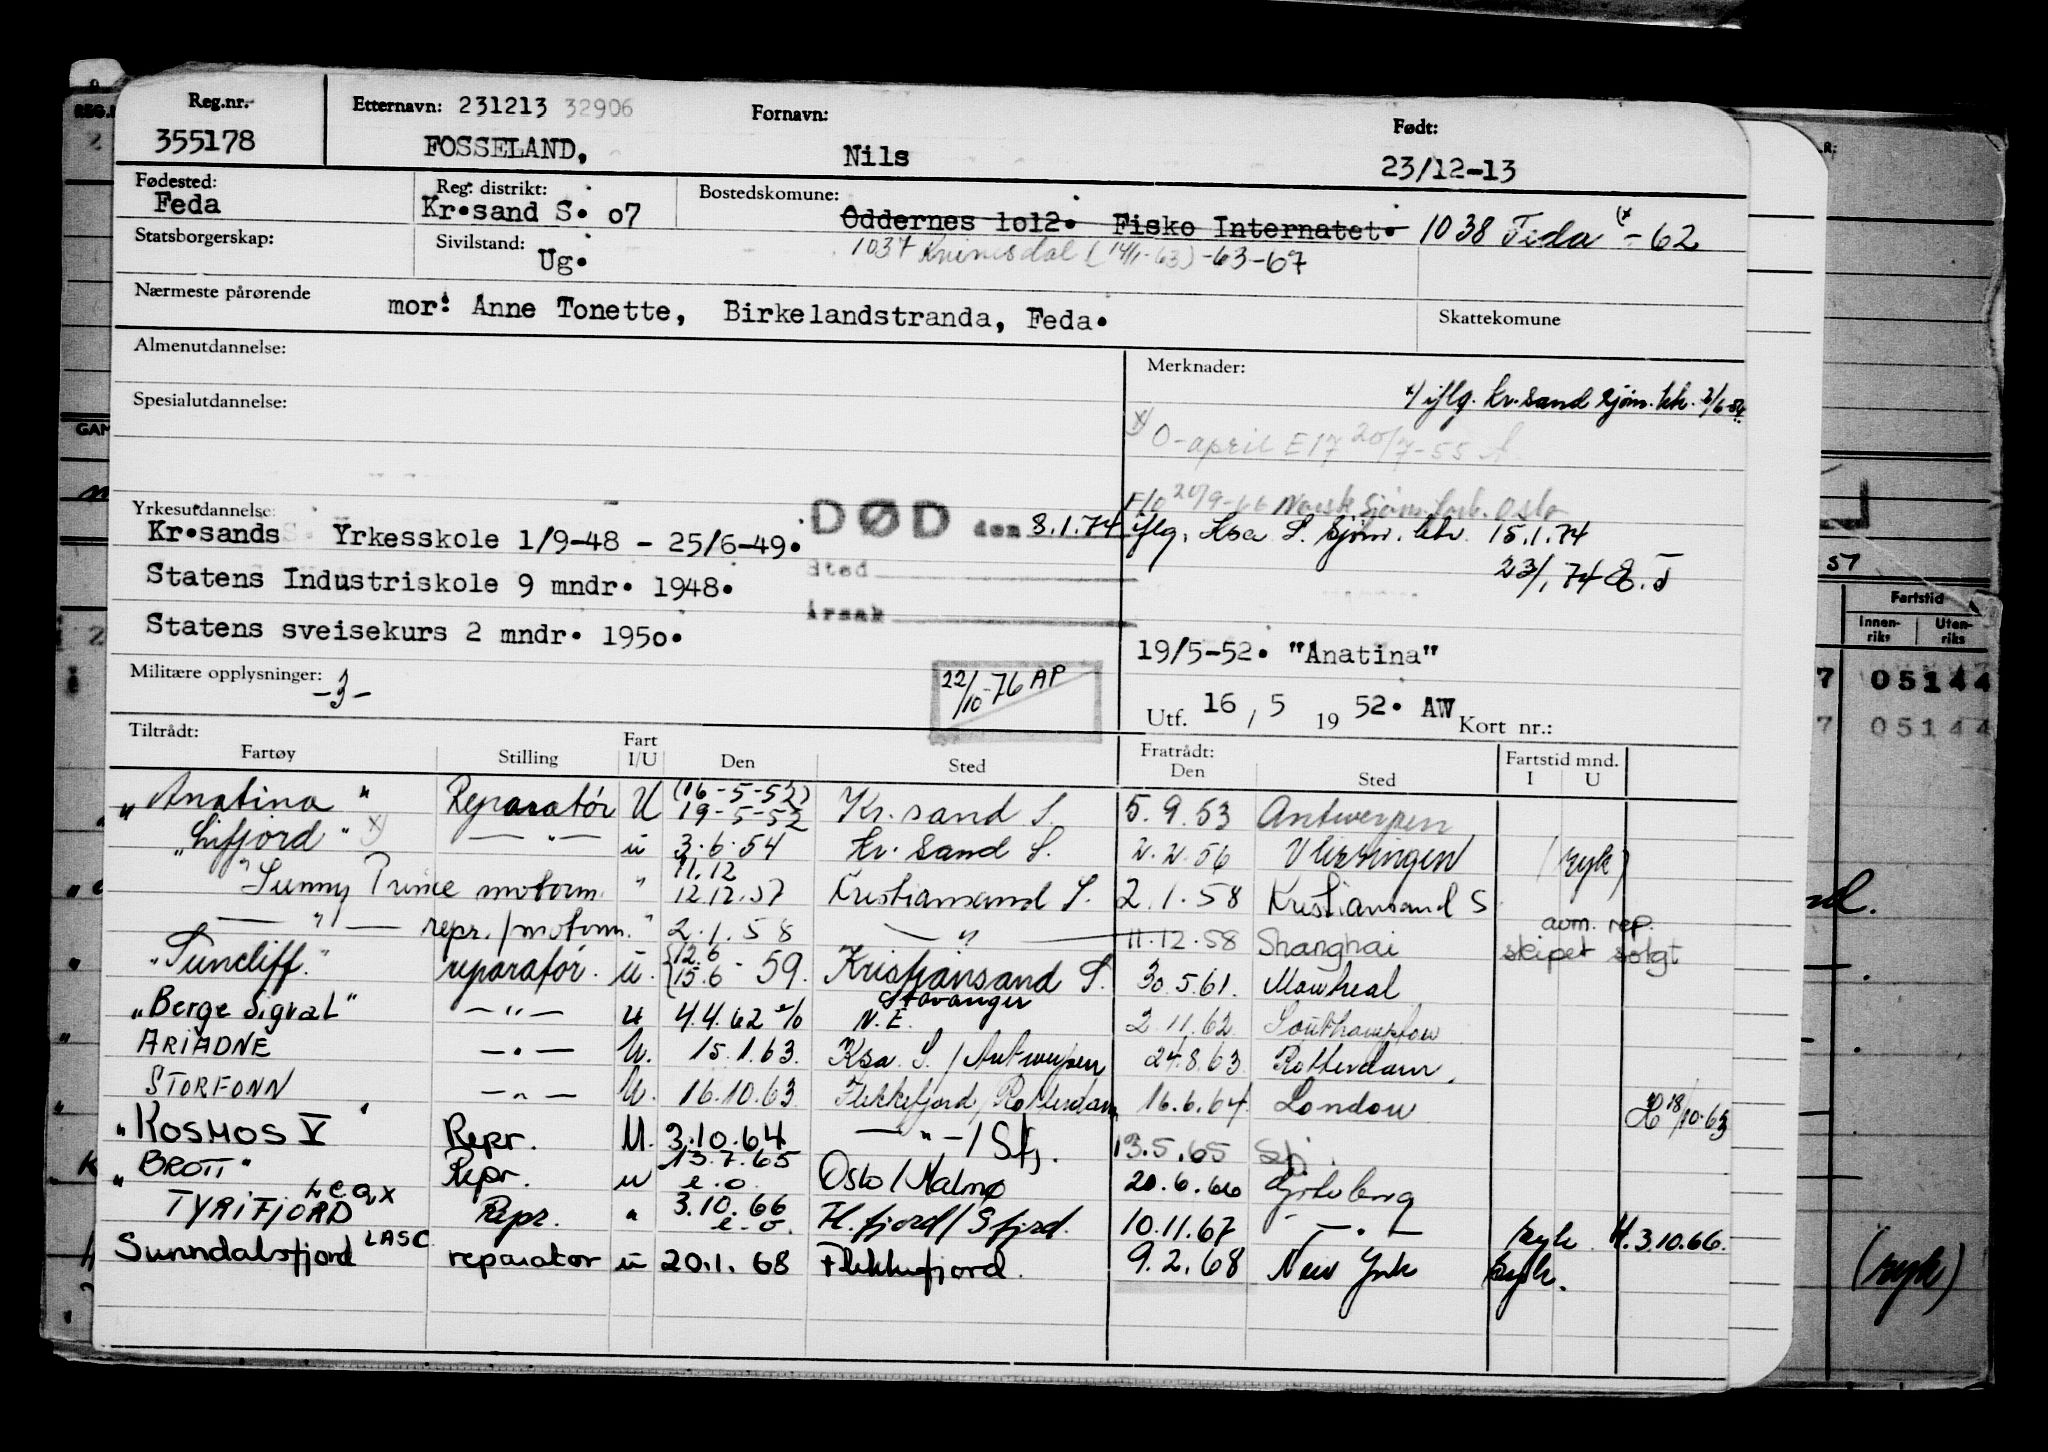 Reg.nr. Etternavn: 231213 32906 Fornavn: Født:
355178 FOSSELAND, Nils 23/12-13
Fødested: Reg. distrikt: Bostedskomune:
Feda Kr.sand S. o7 Oddernes 1o12. Fisko Internatet. 1038 Feda (x -62
Statsborgerskap: Sivilstand: 1037 Kvinesdal (14/1-63) -63-67
Ug.
Nærmeste pårørende mor: Anne Tonette, Birkelandstranda, Feda. Skattekomune
Almenutdannelse: Merknader:
x) iflg. Kr.sand sjøm.
Spesialutdannelse:
x) O-april E17 20/7-55
20/9-66 Norsk Sjøm. Oslo
Yrkesutdannelse: DØD den 8.1.74 iflg. Ksa S. Sjøm. 15.1.74
Kr.sands S. Yrkesskole 1/9-48 - 25/6-49.
23/1.74
Statens Industriskole 9 mndr. 1948. Sted
Årsak
Statens sveisekurs 2 mndr. 195o.
19/5-52. "Anatina"
Militære opplysninger: -3- 22/10-76 AP
Utf. 16 / 5 19 52. AW Kort nr.:
Tiltrådt: Fratrådt: Fartstid mnd.
Fartøy Stilling Fart I/U Den Sted Den Sted I U
"Anatina" Reparatør U (16-5-52) 19-5-52 Kr.sand S. 5.9.53 Antwerpen
"Lifjord" x) — " — u 3.6.54 Kr. Sand S. 2.2.56 Vlissingen (syk)
"Sunny Prince motorm. " 11.12 12.12.57 Kristiansand S. 2.1.58 Kristiansand S
— " — repr./motorm. " 2.1.58 — " — 11.12.58 Shanghai avm. rep. skipet solgt
"Suncliff" reparatør. u. {12.6 15.6 - 59. Kristiansand S. 30.5.61. Montreal
"Berge Sigval" — " — u 4.4.62 Stavanger N.E. 2.11.62 Southampton
ARIADNE — " — U. 15.1.63. Ksa. S. / Antwerpen 24.8.63 Rotterdam.
STORFONN — " — U. 16.10.63 Flekkefjord / Rotterdam 16.6.64 London 18/10-63
"KOSMOS V" Repr. U. 3.10.64 — " — / Sfj. 13.5.65 Sfj.
"BROTT" Repr. u 13.7.65 e.o. Oslo / Malmø 20.6.66 Gøteborg
TYRIFJORD LEQX Repr. " 3.10.66 e-o. Fl.fjord / Sfjord. 10.11.67 — " — syk. H. 3.10.66.
Sunndalsfjord LASC reparatør u 20.1.68 Flekkefjord. 9.2.68 New York syk.
Fartstid
Innen-riks Uten-riks
57
7 05144
7 05144
(syk)